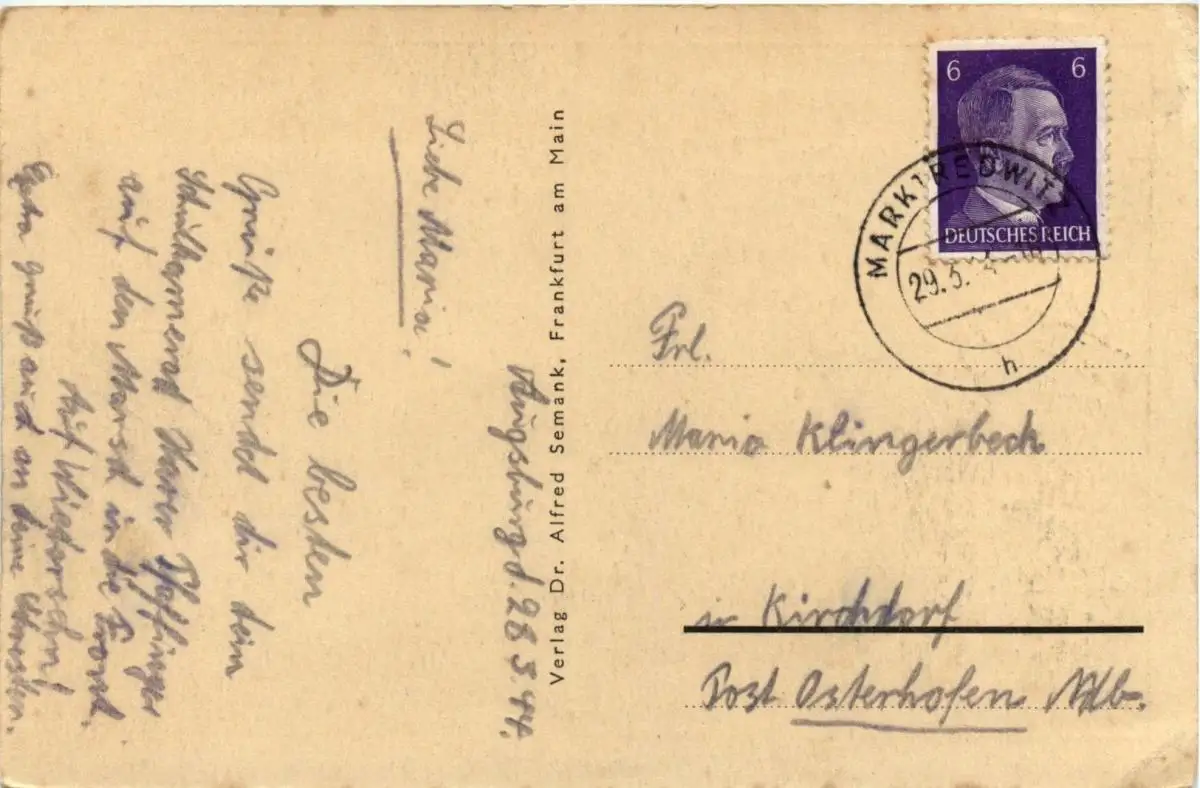 Augsburg d. 28.3.44.
Liebe Maria!
Die besten
Grüße sendet dir dein
Schulkamerad Xaver Pfaffinger
auf den Marsch in die Front.
Auf Wiedersehn!
Extra gruß auch an deine
Verlag Dr. Alfred Semank, Frankfurt am Main
6 6
DEUTSCHES REICH
MARKTREDWITZ
29.3.
h
Frl.
Maria Klingerbeck
in Kirchdorf
Post Osterhofen Ndb.